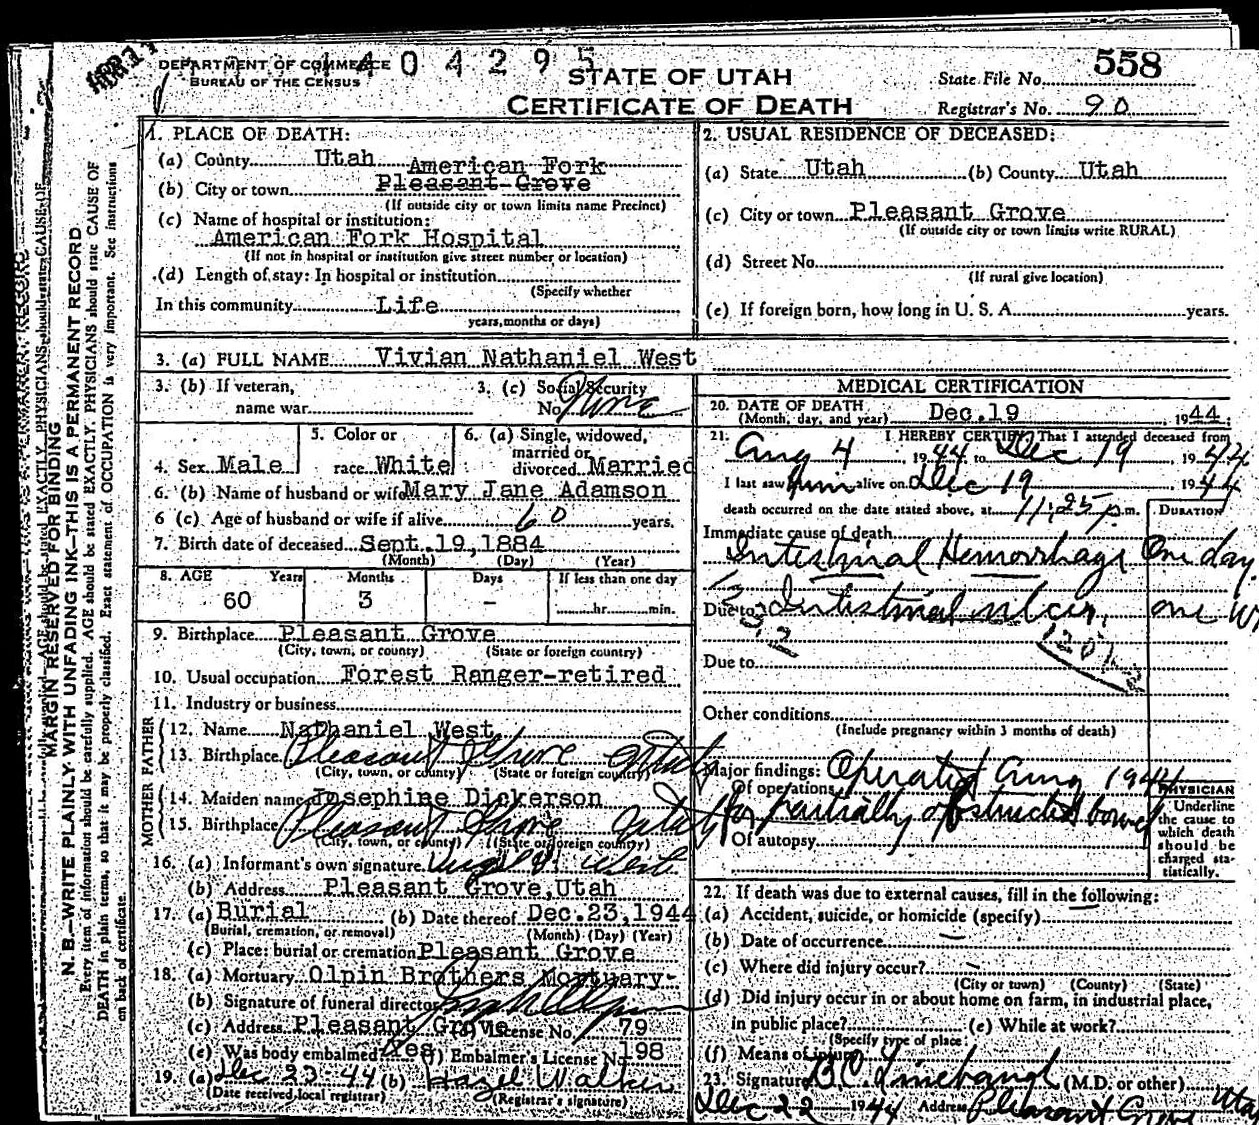 DEPARTMENT OF COMMERCE
BUREAU OF THE CENSUS
1404295
STATE OF UTAH
CERTIFICATE OF DEATH
State File No. 558
Registrar's No. 90
MARGIN RESERVED FOR BINDING
N. B.—WRITE PLAINLY WITH UNFADING INK—THIS IS A PERMANENT RECORD
Every item of information should be carefully supplied. AGE should be stated EXACTLY. PHYSICIANS should state CAUSE OF
DEATH in plain terms, so that it may be properly classified. Exact statement of OCCUPATION is very important. See instructions
on back of certificate.
1. PLACE OF DEATH:
(a) County Utah
American Fork
(b) City or town Pleasant Grove
(If outside city or town limits name Precinct)
(c) Name of hospital or institution:
American Fork Hospital
(If not in hospital or institution give street number or location)
(d) Length of stay: In hospital or institution
(Specify whether
In this community Life
years, months or days)
2. USUAL RESIDENCE OF DECEASED:
(a) State Utah (b) County Utah
(c) City or town Pleasant Grove
(If outside city or town limits write RURAL)
(d) Street No.
(If rural give location)
(e) If foreign born, how long in U. S. A. years.
3. (a) FULL NAME Vivian Nathaniel West
3. (b) If veteran,
name war
3. (c) Social Security
No. None
4. Sex Male
5. Color or
race White
6. (a) Single, widowed,
married or
divorced Married
6. (b) Name of husband or wife Mary Jane Adamson
6 (c) Age of husband or wife if alive 60 years.
7. Birth date of deceased Sept. 19, 1884
(Month) (Day) (Year)
8. AGE Years Months Days If less than one day
60 3 - hr. min.
9. Birthplace Pleasant Grove
(City, town, or county) (State or foreign country)
10. Usual occupation Forest Ranger-retired
11. Industry or business
FATHER
12. Name Nathaniel West
13. Birthplace Pleasant Grove Utah
(City, town, or county) (State or foreign country)
MOTHER
14. Maiden name Josephine Dickerson
15. Birthplace Pleasant Grove Utah
(City, town, or county) (State or foreign country)
16. (a) Informant's own signature West
(b) Address Pleasant Grove, Utah
17. (a) Burial (b) Date thereof Dec. 23, 1944
(Burial, cremation, or removal) (Month) (Day) (Year)
(c) Place: burial or cremation Pleasant Grove
18. (a) Mortuary Olpin Brothers Mortuary-
(b) Signature of funeral director
(c) Address Pleasant Grove License No. 79
(e) Was body embalmed Yes (f) Embalmer's License No. 198
19. (a) Dec 23-44 (b) Hazel Walker
(Date received, local registrar) (Registrar's signature)
MEDICAL CERTIFICATION
20. DATE OF DEATH
(Month, day, and year) Dec. 19, 1944
21. I HEREBY CERTIFY, That I attended deceased from
Aug 4, 1944, to Dec 19, 1944
I last saw him alive on Dec 19, 1944
death occurred on the date stated above, at 11:25 p.m.
DURATION
Immediate cause of death
Intestinal Hemorrhage One day.
Due to Intestinal ulcer, one
Due to
Other conditions
(Include pregnancy within 3 months of death)
Major findings: Operated Aug 1944
Of operations for partially obstructed bowel
Of autopsy
PHYSICIAN
Underline
the cause to
which death
should be
charged sta-
tistically.
22. If death was due to external causes, fill in the following:
(a) Accident, suicide, or homicide (specify)
(b) Date of occurrence —
(c) Where did injury occur? —
(City or town) (County) (State)
(d) Did injury occur in or about home on farm, in industrial place,
in public place? (e) While at work?
(Specify type of place)
(f) Means of injury
23. Signature B.C. Linebaugh (M.D. or other)
Dec 22 1944 Address Pleasant Grove Utah